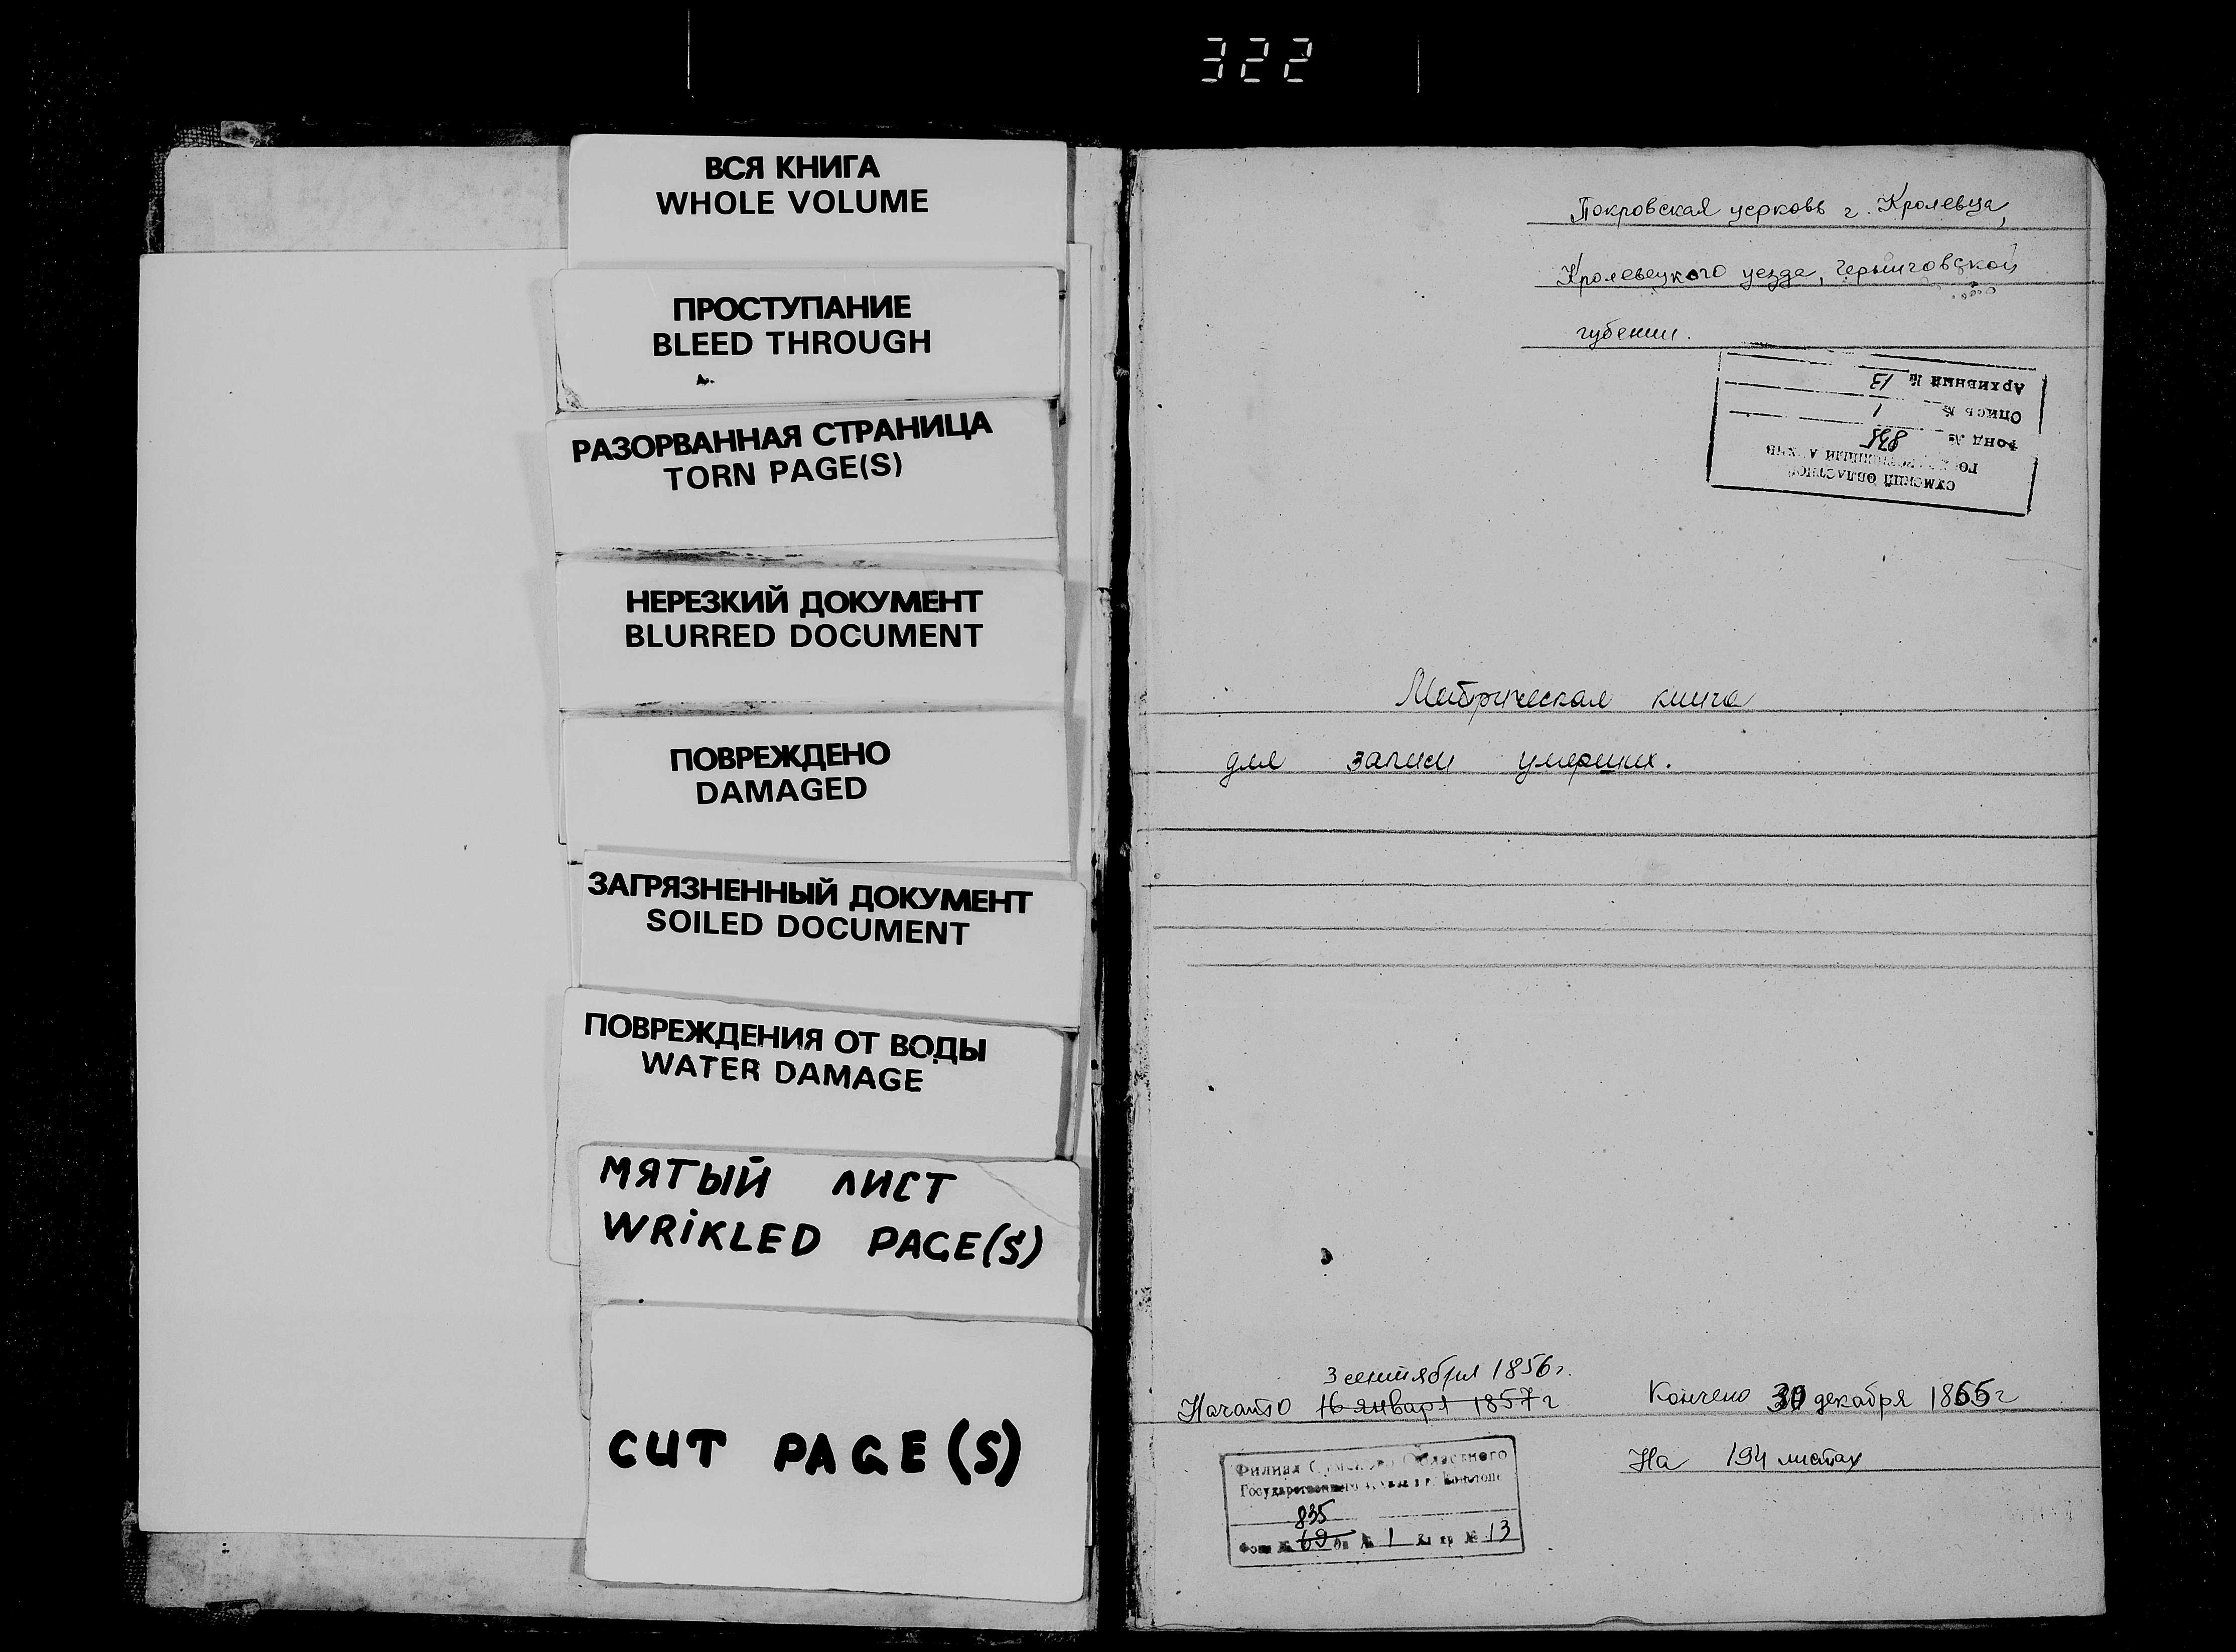 322
ВСЯ КНИГА
WHOLE VOLUME
ПРОСТУПАНИЕ
BLEED THROUGH
РАЗОРВАННАЯ СТРАНИЦА
TORN PAGE(S)
НЕРЕЗКИЙ ДОКУМЕНТ
BLURRED DOCUMENT
ПОВРЕЖДЕНО
DAMAGED
ЗАГРЯЗНЕННЫЙ ДОКУМЕНТ
SOILED DOCUMENT
ПОВРЕЖДЕНИЯ ОТ ВОДЫ
WATER DAMAGE
МЯТЫЙ ЛИСТ
WRIKLED PAGE(S)
CUT PAGE(S)
Покровская церковь г. Кролевца,
Кролевецкого уезда, Черниговской
губении.
СУМСКИЙ ОБЛАСТНОЙ
ГОСУДАРСТВЕННЫЙ АРХИВ
Фонд № 835
Опись № 1
Архивный № 13
Метрическая книга
для записи умерших.
3 сентября 1856г.
Начато 16 января 1857г
Кончено 30 декабря 1865г
На 194 листах
Филиал Сумского Областного
Государственного архива в г. Конотопе
835
Фонд № 69 оп № 1 Ед хр № 13